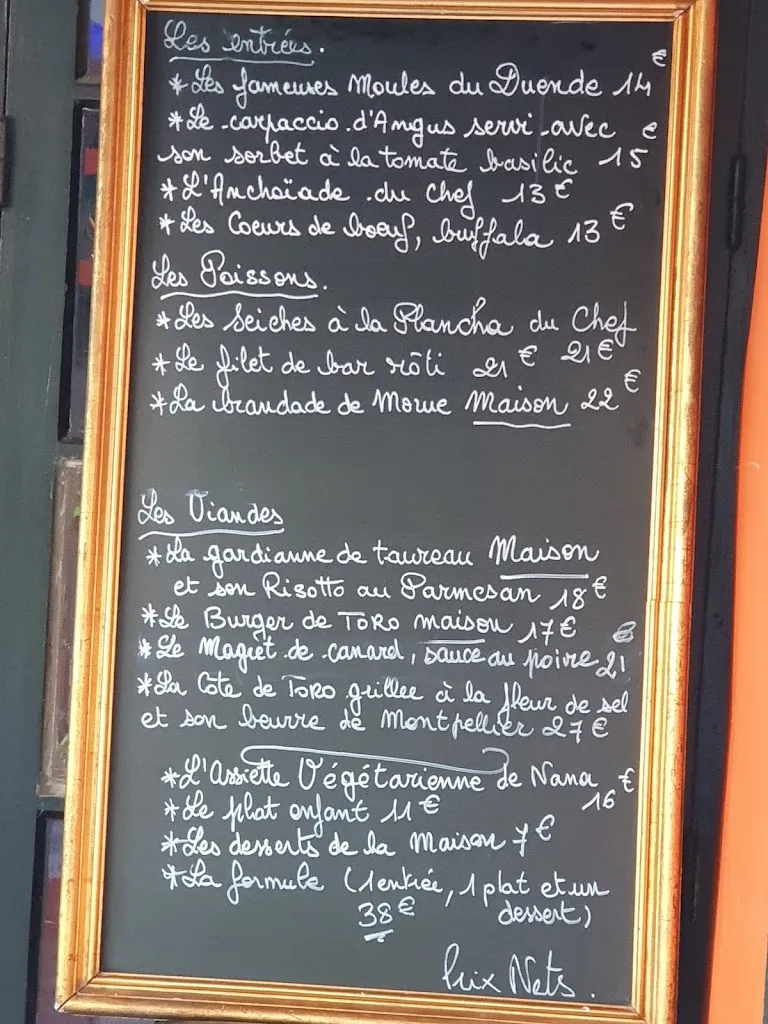 Les entrées.
* Les fameuses Moules du Duende 14€
* Le carpaccio d'Angus servi avec
son sorbet à la tomate basilic 15€
* L'Anchoïade du chef 13€
* Les Coeurs de boeuf, buffala 13€
Les Poissons.
* Les Seiches à la Plancha du Chef
21€
* Le filet de bar rôti 21€
* La brandade de Morue Maison 22€
Les Viandes
* La gardianne de taureau Maison
et son Risotto au Parmesan 18€
* Le Burger de TORO maison 17€
* Le Magret de canard, sauce au poivre 21€
* La Côte de TORO grillée à la fleur de sel
et son beurre de Montpellier 27€
* L'Assiette Végétarienne de Nana 16€
* Le plat enfant 11€
* Les desserts de la Maison 7€
* La formule (1 entrée, 1 plat et un
38€ dessert)
Prix Nets.